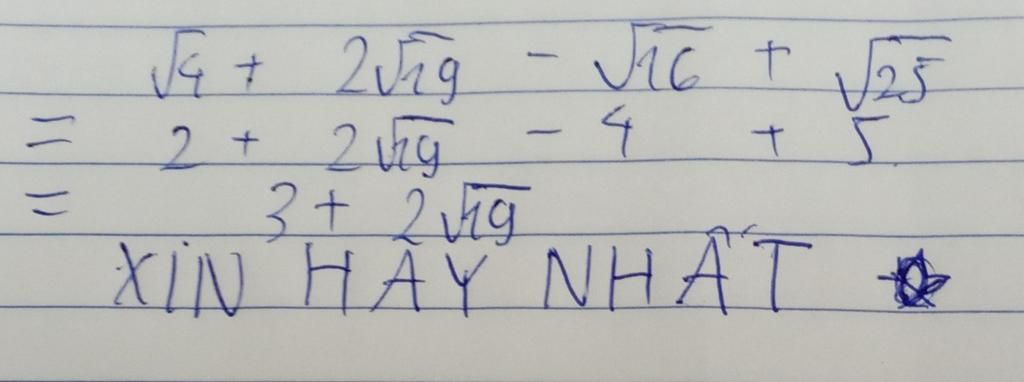 √4 + 2√19 - √16 + √25
= 2 + 2√19 - 4 + 5
= 3 + 2√19
XIN HÃY NHẤT